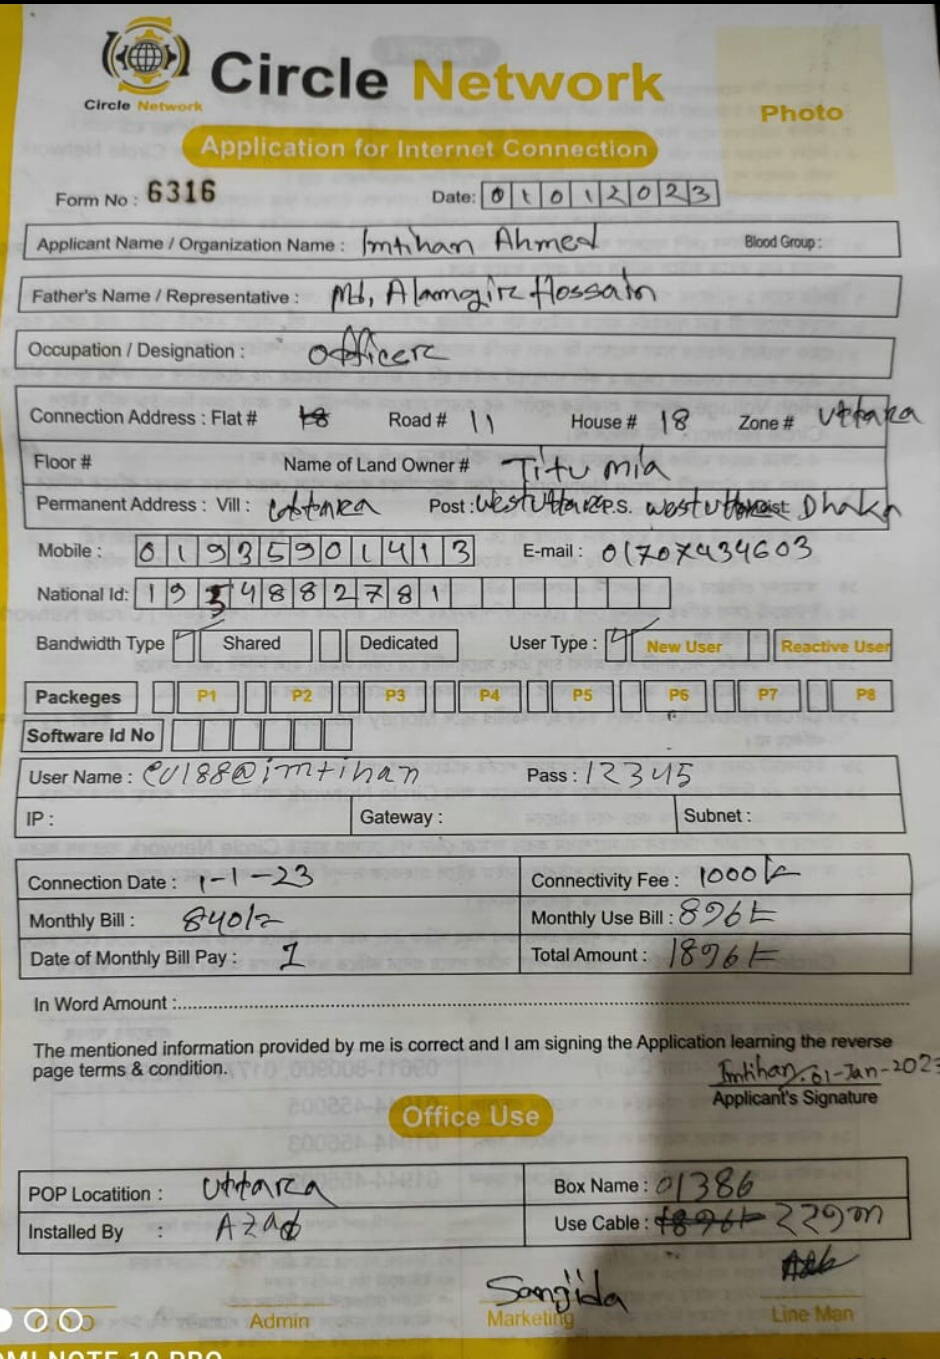 Circle Network
Circle Network
Photo
Application for Internet Connection
Form No : 6316 Date: 01012023
Applicant Name / Organization Name : Imtihan Ahmed Blood Group :
Father's Name / Representative : Md, Alamgir Hossain
Occupation / Designation : officer
Connection Address : Flat # Road # 11 House # 18 Zone # Uttara
Floor # Name of Land Owner # Titu mia
Permanent Address : Vill : uttara Post : westuttara P.S. westuttara Dist: Dhaka
Mobile : 01935901413 E-mail : 01707434603
National Id: 1954882781
Bandwidth Type Shared Dedicated User Type : New User Reactive User
Packeges P1 P2 P3 P4 P5 P6 P7 P8
Software Id No
User Name : cu188@imtihan Pass : 12345
IP : Gateway : Subnet :
Connection Date : 1-1-23 Connectivity Fee : 1000/=
Monthly Bill : 840/= Monthly Use Bill : 896/=
Date of Monthly Bill Pay : 1 Total Amount : 1896/=
In Word Amount :
The mentioned information provided by me is correct and I am signing the Application learning the reverse
page terms & condition.
Imtihan. 01-Jan-2023
Applicant's Signature
Office Use
POP Locatition : Uttara Box Name : 01386
Installed By : Azad Use Cable : 229m
Sanjida
C.O.O Admin Marketing Line Man